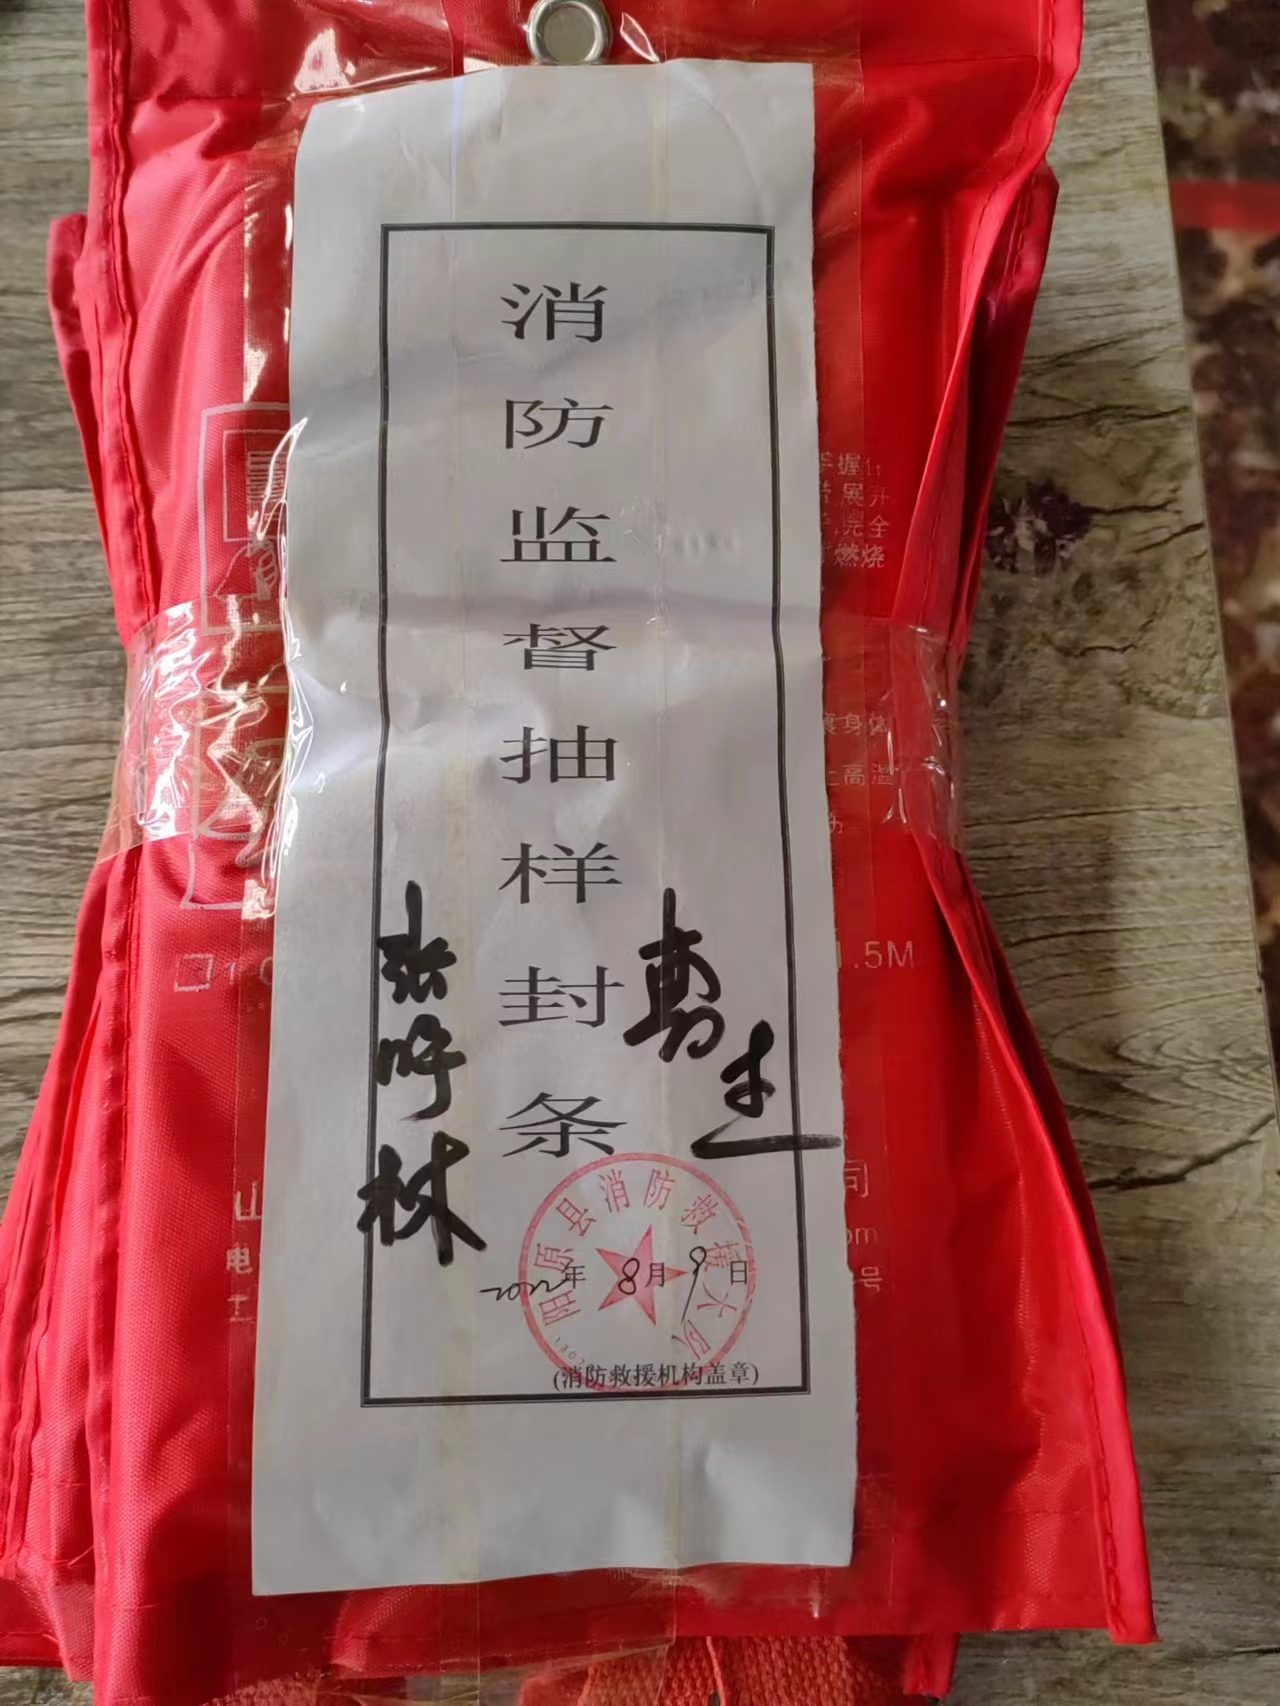 消防监督抽样封条
张
林
阳原县消防救援大队
2022年8月9日
(消防救援机构盖章)
手握
展开
完全
燃烧
身体
高温
1.5M
山
电
司
om
号